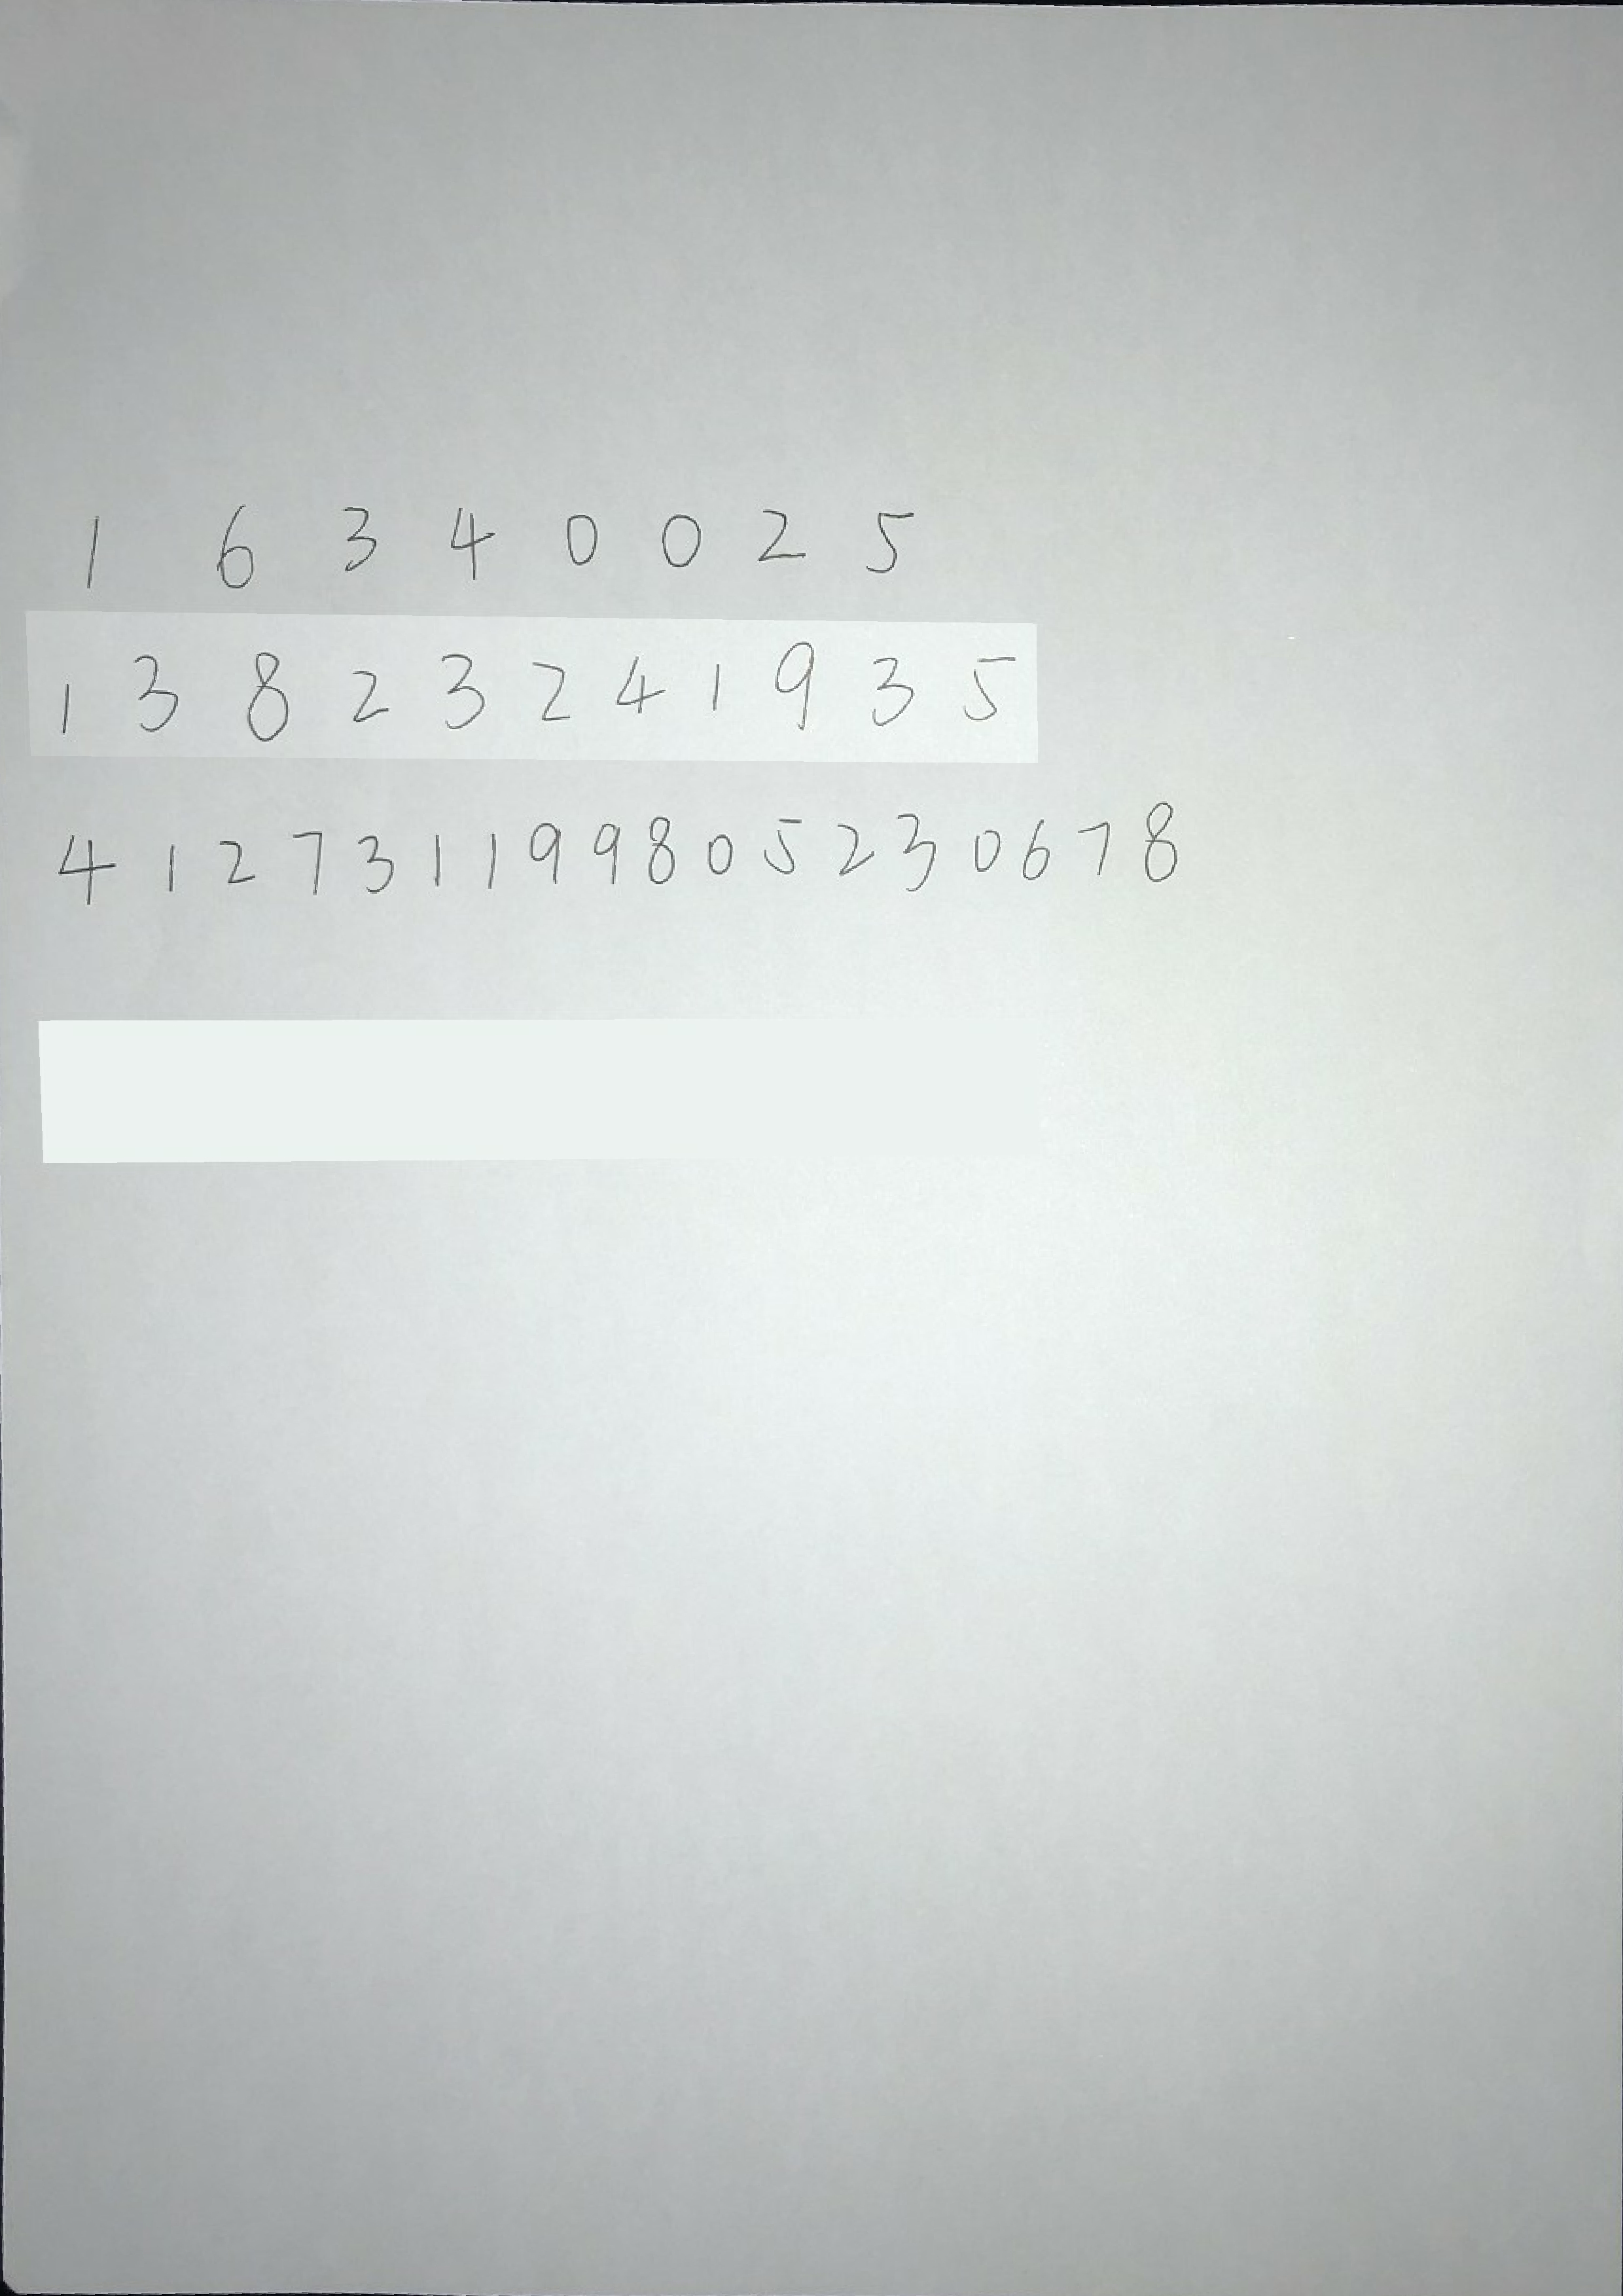 1 6 3 4 0 0 2 5
1 3 8 2 3 2 4 1 9 3 5
4 1 2 7 3 1 1 9 9 8 0 5 2 3 0 6 7 8